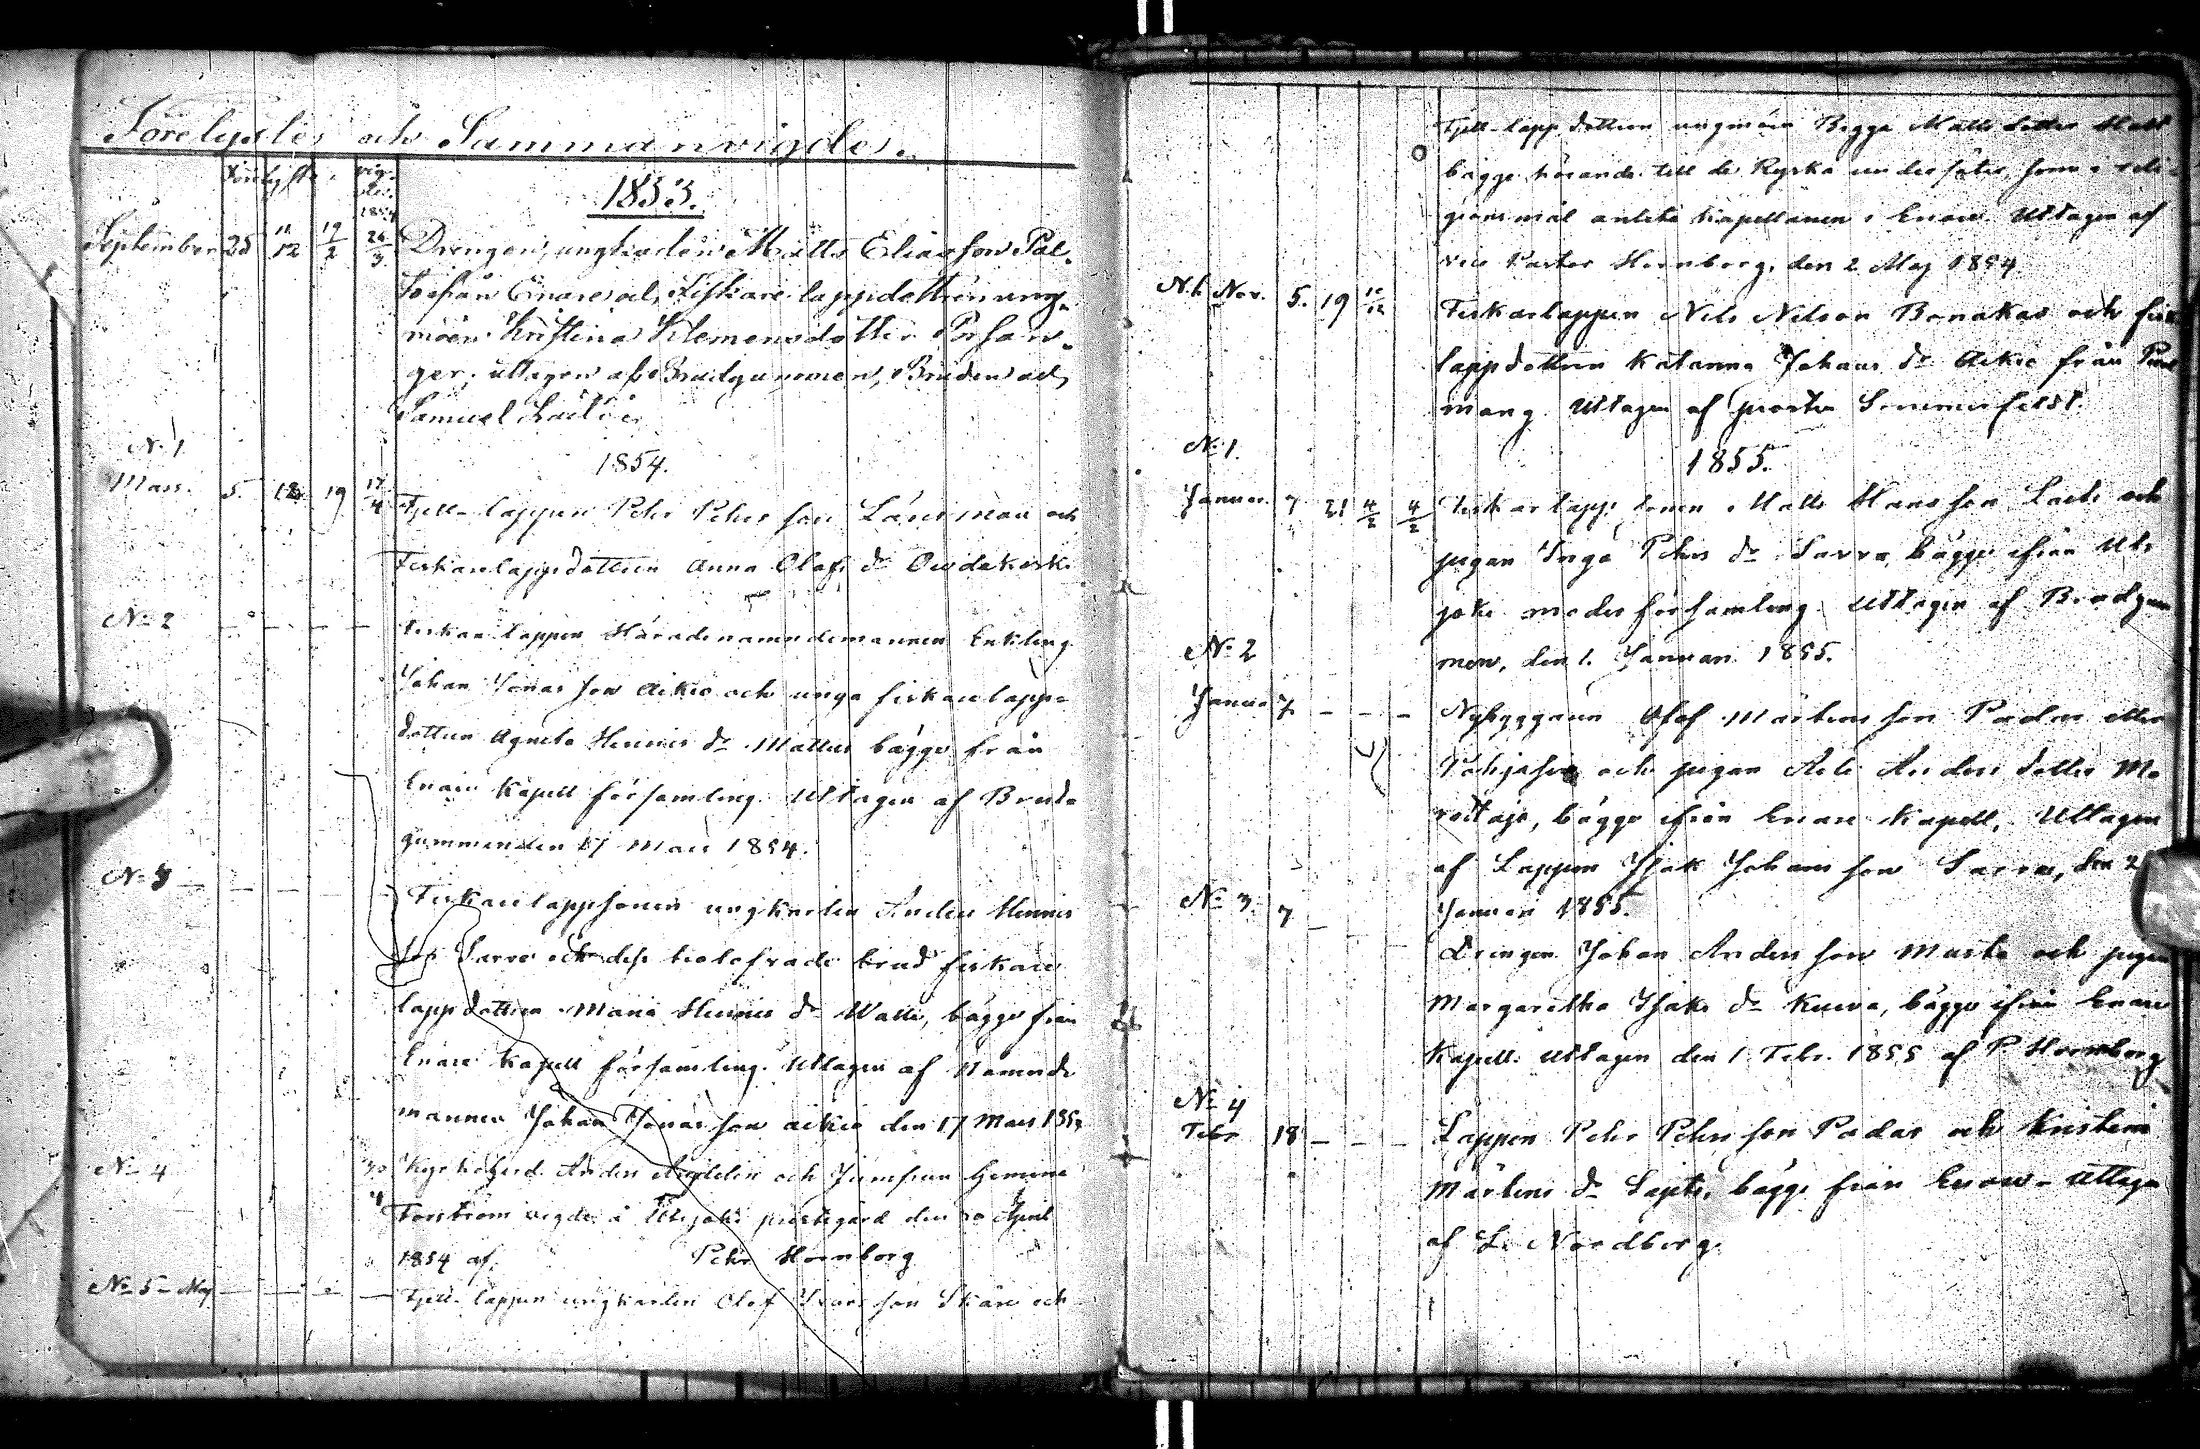 Förelyste och Sammanvigde.
Förelyste. vig-
de.
1853.
1854
September 25 11/12 19/2 26/3 Drengen, ungkarlen Matts Eliasson Pal-
to från Enare och Fiskare lappdottren ung-
mön Kristina Klemensdotter Porsan-
ger, uttagen af Brudgummen, Bruden och
Samuel
N:1
1854.
Mars. 5. 12. 19 17/4 Fjell-lappen Pehr Pehrs son Länsman och
Fiskarelappdottren Anna Olofs dr
N:2 Fiskare lappen Häradsnämndemannen Enkling
Johan Jonas son Aikio och unga fiskarelapp-
dottren Agneta Hennes dr Mattus bägge från
Enare Kapell församling. Uttagen af Brud-
gummen den 17 Mars 1854.
N:3 Fiskarelappsonen ungkarlen Anders Hennes
son Sarre och dess trolofvade brud fiskare
lappdottren Maria Hennes dr Walle, bägge från
Enare Kapell församling. Uttagen af Nämnde-
mannen Johan Jonas son Aikio den 17 Mars 1854
N:4 30/4 Anders och Jumfrun
vigde i Utsjoki prestegård den 30 April
1854 af. Pehr Hornborg
N:5 - Maj Fjell-lappen ungkarlen Olof Ivars son Skåre och
Fjell-lapp dottren ungmön Bigga Matts dotter
bägge hörande till de Ryska undersåter, som i reli-
gions mål anlita kapellanen i Enare. Uttagen af
vice Pastor Hornborg, den 2 Maj 1854
N:6 Nov. 5. 19 10/12 Fiskarlappen Nils Nilsson Bonakas och fisk
lappdottren Katarina Johans dr Aikio från
mang. Uttagen af prosten Sommerfeldt.
N:1.
1855.
Januar. 7 21 4/2 4/2 Fiskarlapp sonen Matts Hans son och
pigan Inga Pehrs dr Sarre, bägge ifrån Uts-
joki moder församling. Uttagen af Brudgum
men, den 1. Januari 1855.
N:2
Januar 7. Nybyggaren Olof Mårtens son Padar eller
och pigan Anders dotter Mo
rottaja, bägge ifrån Enare Kapell, Uttagen
af Lappen Isak Johans son Sarre, den 2
Januari 1855.
N:3. 7
Drengen Johan Anders son Musta och pigan
Margaretha Isaks dr Kuuva, bägge ifrån Enare
Kapell. Uttagen den 1 Febr. 1855 af P. Hornborg
N:4
Febr 18 Lappen Pehr Pehrs son Padar och Kristina
Mårtens dr bägge från Enare - Uttagen
af L. Nordberg.